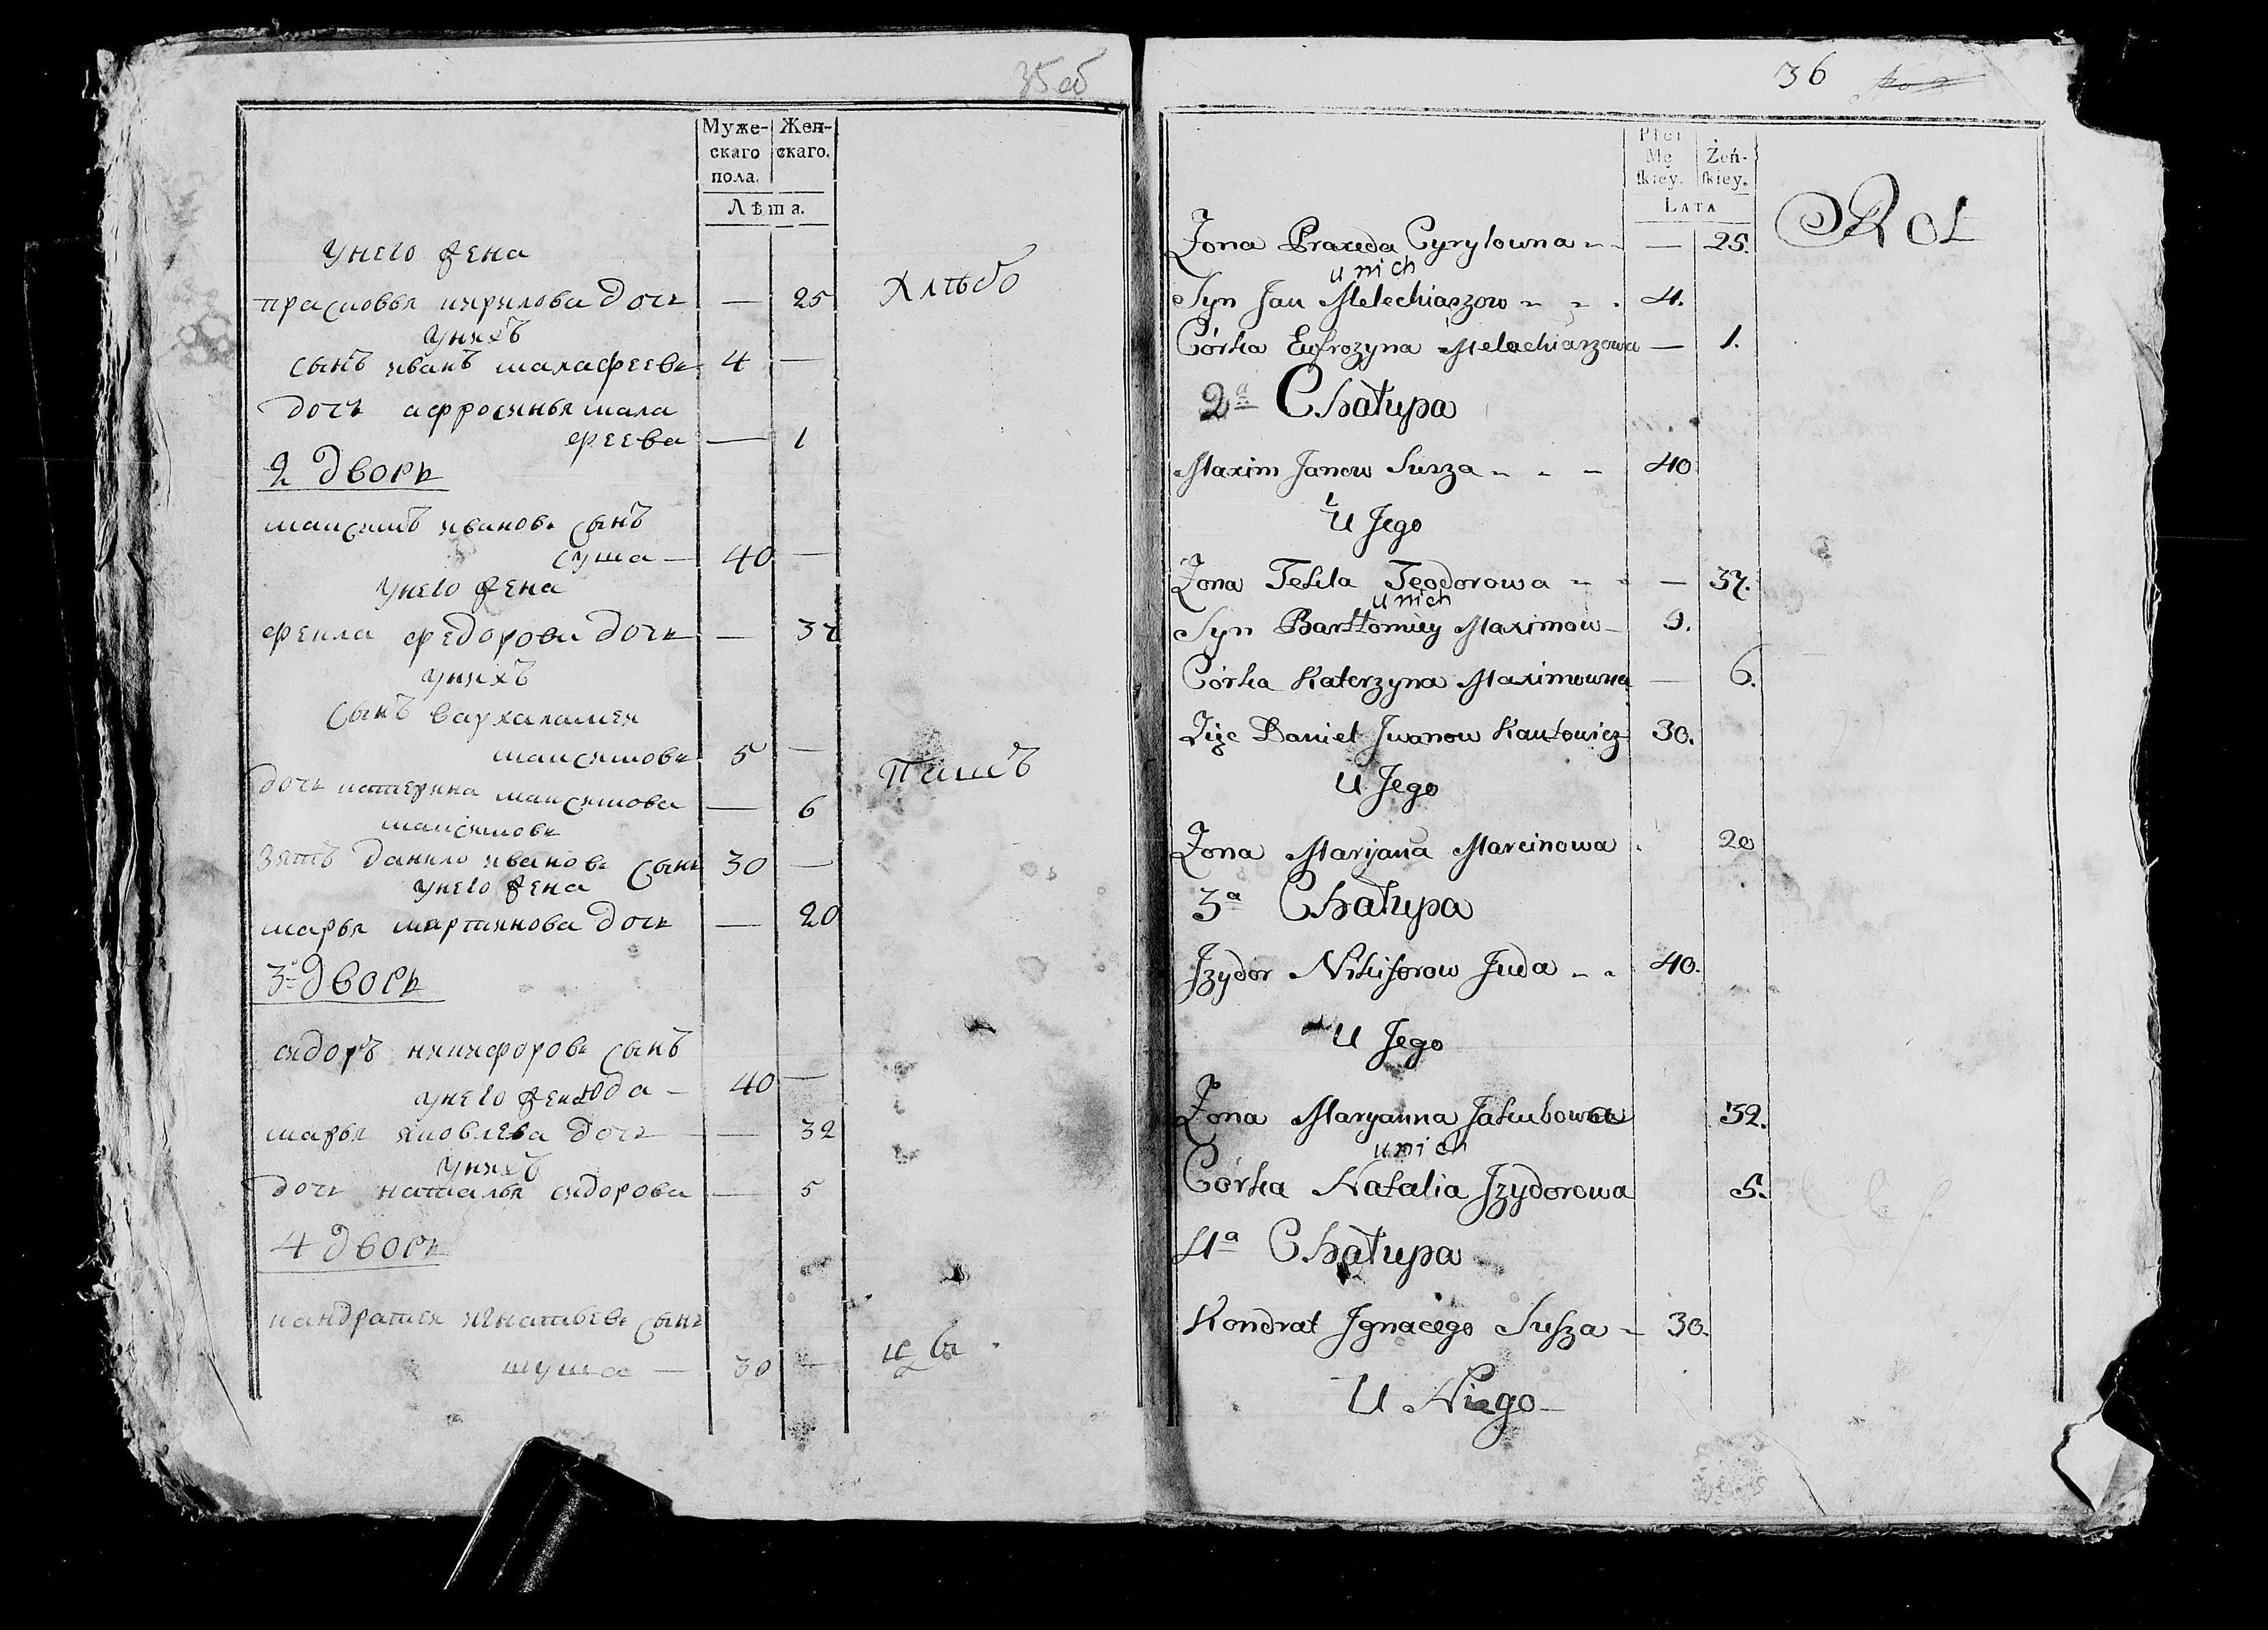 35 об
Муже-
скаго
пола.
Жен-
скаго.
Лѣта.
унего жена
прасковья кирилова дочь — 25
Хлѣбо
унихъ
сынъ иванъ малафеевъ 4 —
дочь афросинья мала
феева — 1
2 дворъ
максимъ ивановъ сынъ
суша — 40 —
унего жена
фекла федорова дочь — 37
унихъ
сынъ вархаламеи
максимовъ 5 —
пашъ
дочь катерина максимова — 6
максимовъ
зять данило ивановъ сынъ 30 —
унего жена
марья мартинова дочь — 20
3 дворъ
сидоръ никифоровъ сынъ
юда — 40 —
унего жена
марья яковлева дочь — 32
унихъ
дочь наталья сидорова — 5
4 дворъ
кандратеи игнатьевъ сынъ
шуша — 30 —
36
Płci
Mę
skiey.
Żeń-
skiey.
LATA
Rol
Żona Praxeda Cyryłowna — 25.
u nich
Syn Jan Melechiaszow 4.
Córka Eufrozyna Melachiaszowa — 1.
2a Chałupa
Maxim Janow Susza 40
U Jego
Żona Tekla Teodorowa — 37.
u nich
Syn Bartłomiey Maximow 9.
Córka Katerzyna Maximowna — 6.
Zięc Daniel Jwanow 30.
U Jego
Żona Maryana Marcinowa 20
3a Chałupa
Jzydor Nikiforow Juda 40.
U Jego
Żona Maryanna Jakubowa 32.
u nich
Córka Natalia Jzydorowa 5.
4a Chałupa
Kondrat Jgnacego Susza 30.
U Niego